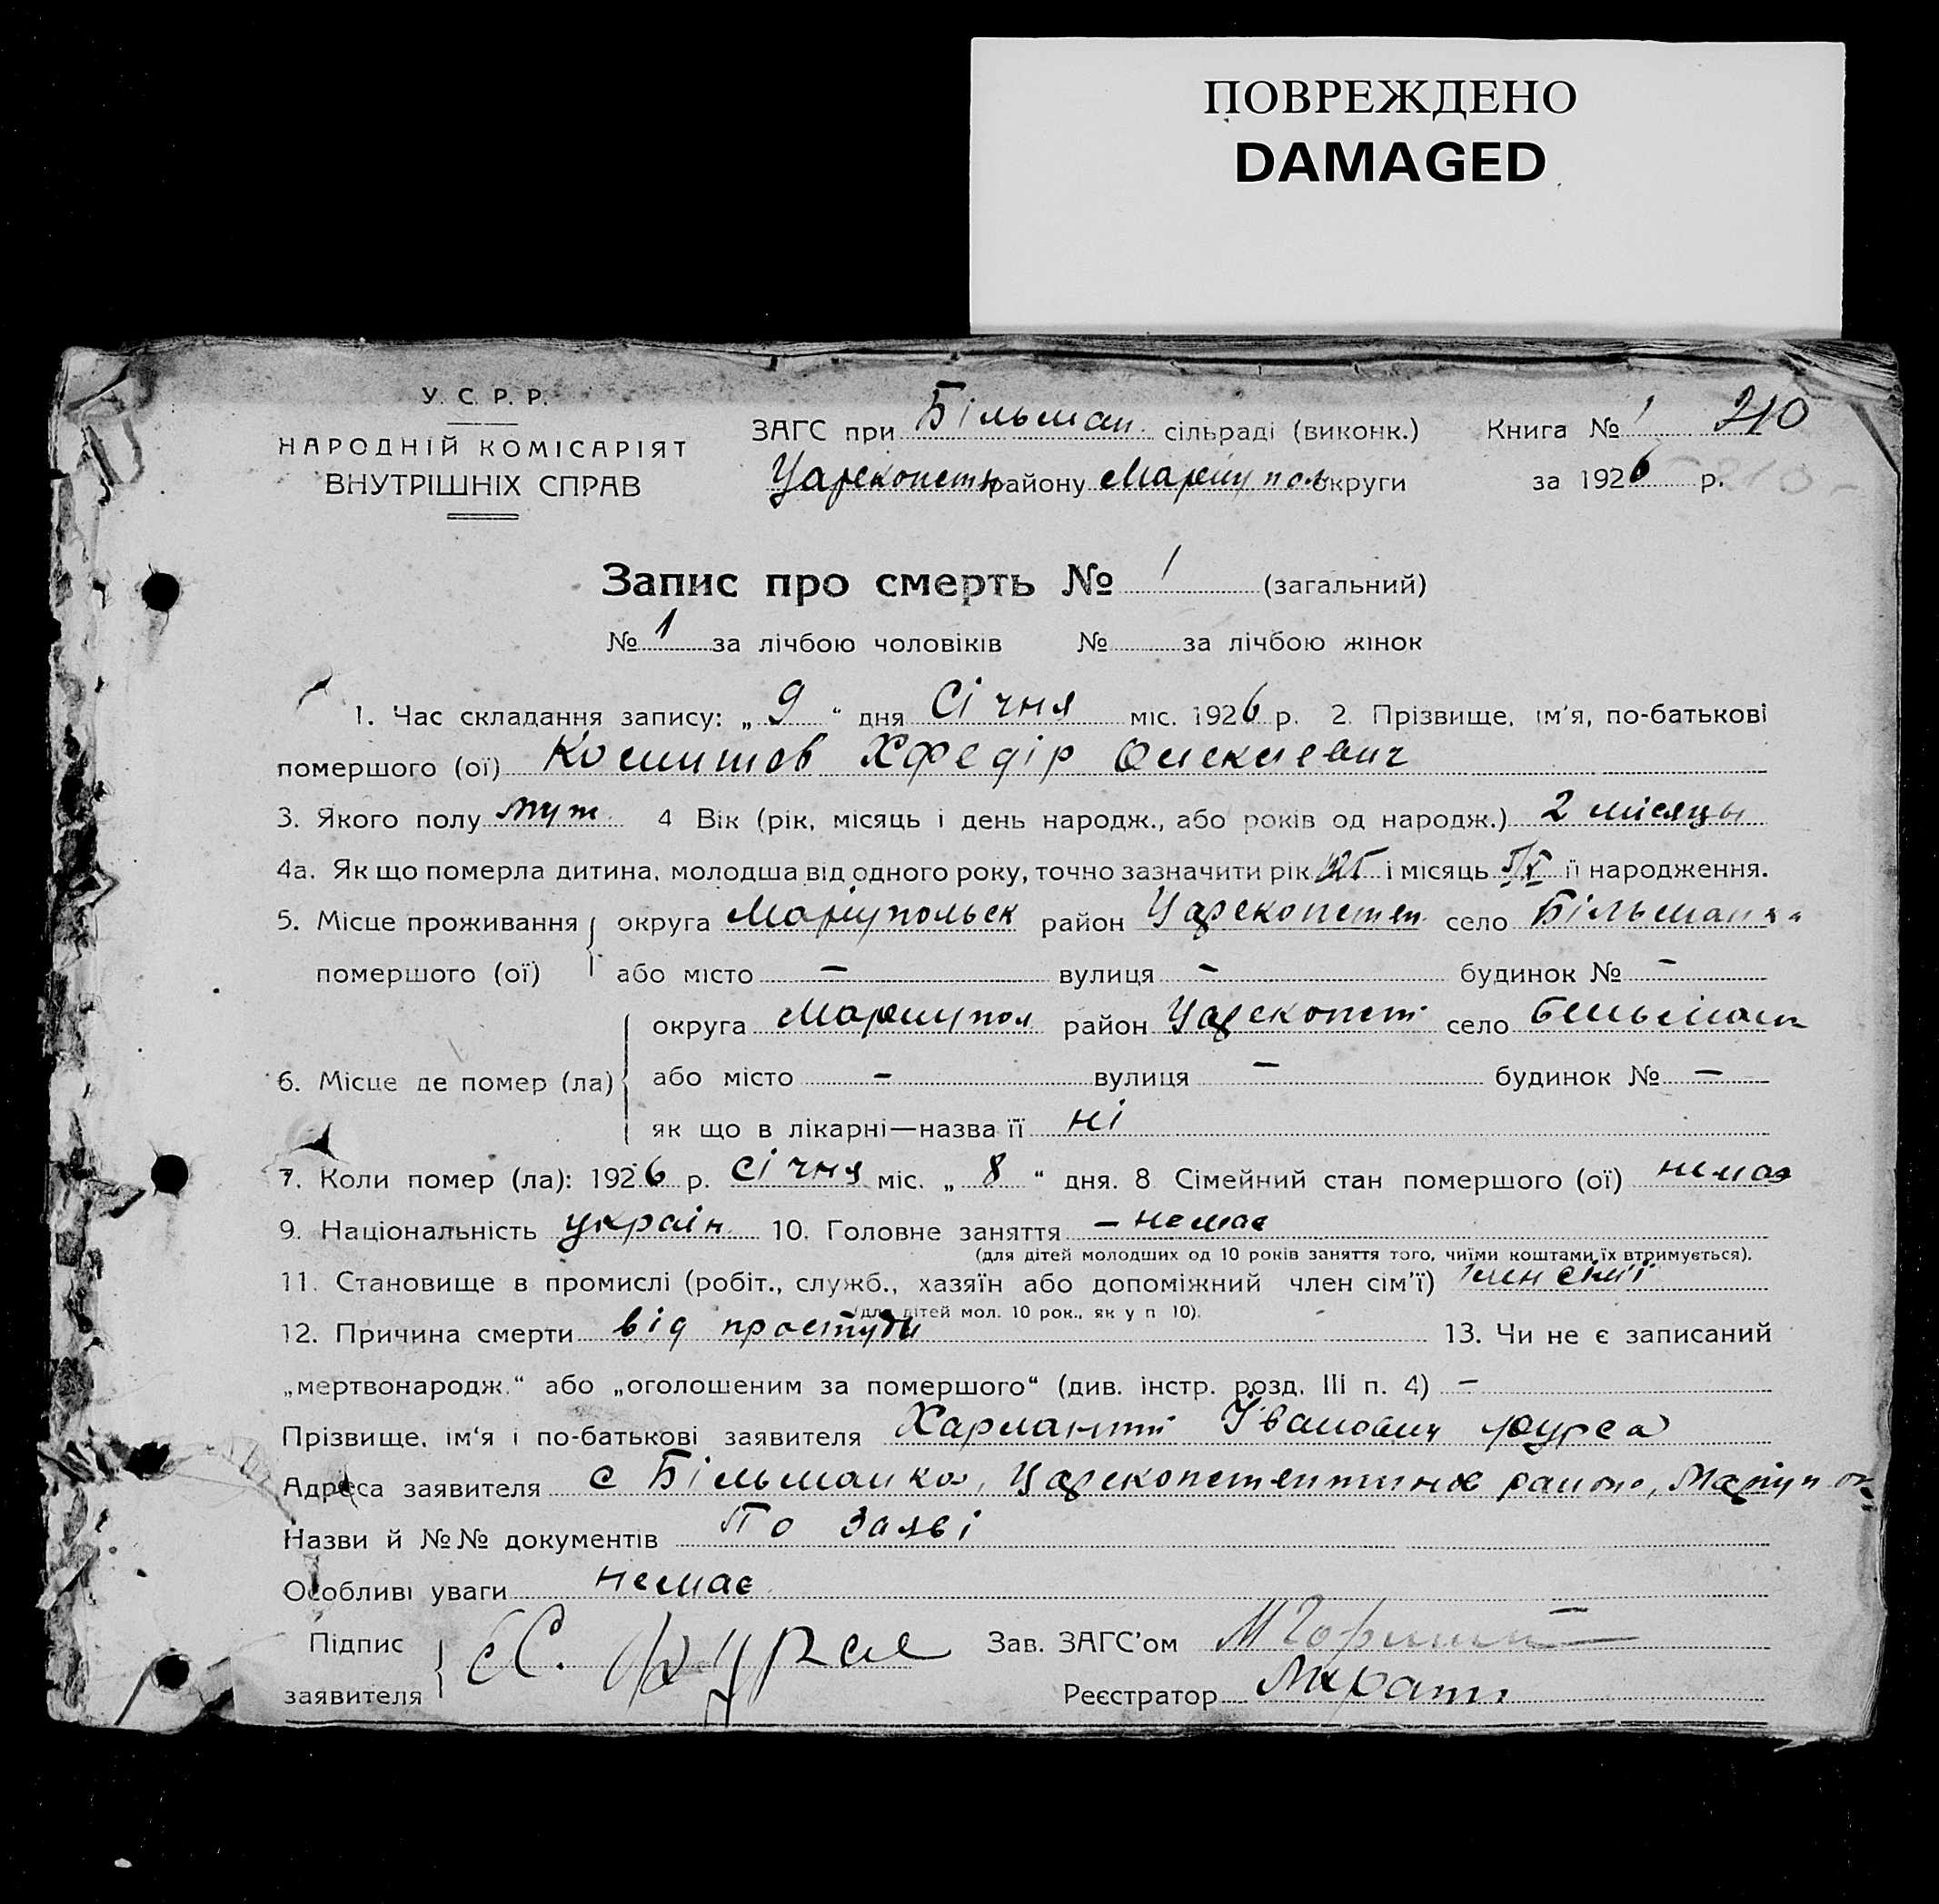 ПОВРЕЖДЕНО
DAMAGED
У. С. Р. Р.
НАРОДНІЙ КОМІСАРІЯТ
ВНУТРІШНІХ СПРАВ
ЗАГС при Більман. сільраді (виконк.) Книга № 1 210
Царекопстн району Маріупол округи за 1926 р. 210
Запис про смерть № 1 (загальний)
№ 1 за лічбою чоловіків № за лічбою жінок
1. Час складання запису: „ 9 “ дня Січня міс. 1926 р. 2. Прізвище, ім'я, по-батькові
помершого (ої) Хфедір
3. Якого полу муж. 4 Вік (рік, місяць і день народж., або років од народж.) 2 місяцы
4а. Як що померла дитина, молодша від одного року, точно зазначити рік і місяць її народження.
5. Місце проживання округа Маріупольск район Царекопстен. село Більманка
помершого (ої) або місто — вулиця — будинок № —
округа Мариупол район Царекопст село Більман
6. Місце де помер (ла) або місто — вулиця — будинок № —
як що в лікарні—назва її ні
7. Коли помер (ла): 1926 р. січня міс. „ 8 “ дня. 8 Сімейний стан помершого (ої) немає
9. Національність україн. 10. Головне заняття — немає
(для дітей молодших од 10 років заняття того, чиїми коштами їх втримується).
11. Становище в промислі (робіт., служб., хазяїн або допоміжний член сім'ї) член сім'ї
(для дітей мол. 10 рок., як у п 10).
12. Причина смерти від простуди 13. Чи не є записаний
„мертвонародж.“ або „оголошеним за помершого“ (див. інстр. розд. III п. 4) —
Прізвище, ім'я і по-батькові заявителя Іванович Фурса
Адреса заявителя с Більманка, району, Маріупол
Назви й №№ документів По Заяві
Особливі уваги немає
Підпис
заявителя Х. Фурса
Зав. ЗАГС'ом
Реєстратор